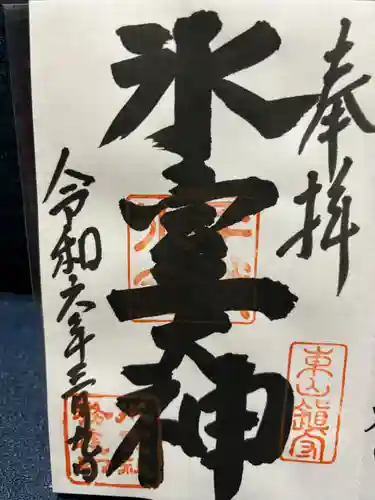 奉拝
氷室大神
東山鎮守
令和六年三月九日